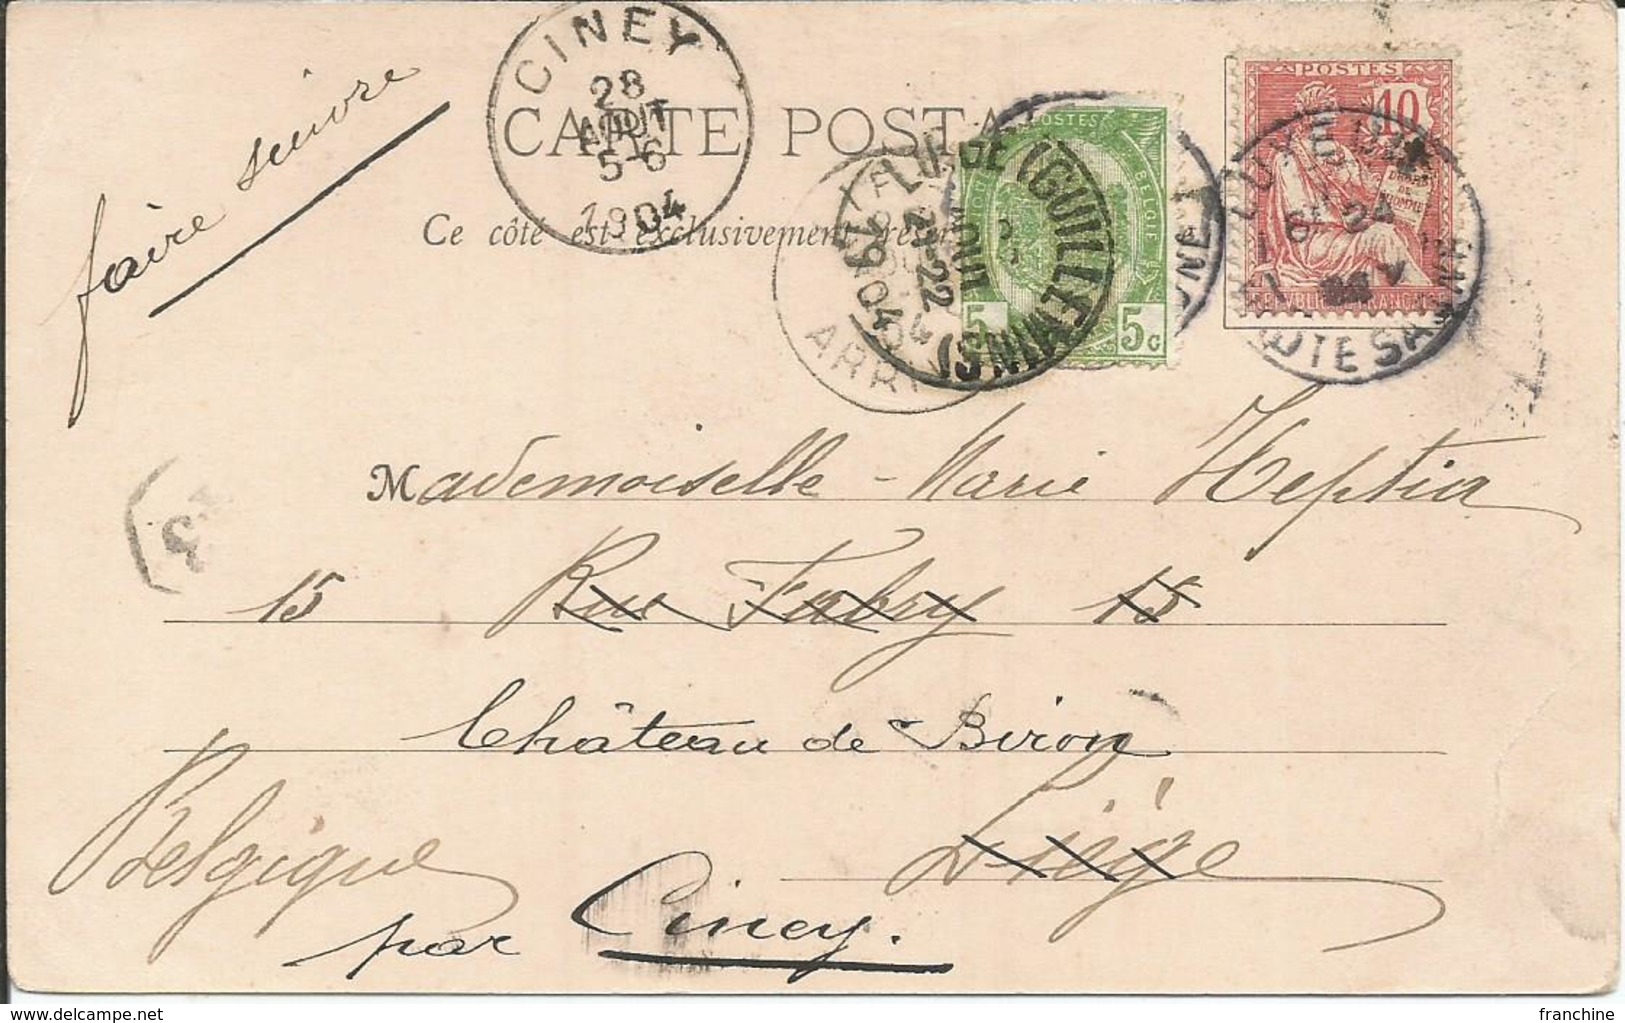 faire suivre
CINEY
28
AOUT
5-6
1904
CARTE POSTA
Ce côté est exclusivement
POSTES
BELGIE
5 5c
LIEGE (GUILLEMINS)
21-22
AOUT
1904
ARRI
POSTES
10
REPUBLIQUE FRANÇAISE
LUXEUIL
HTE SAONE
Mademoiselle - Marie Heptia
15 Rue Fabry 15
Château de Biron
Belgique Liège
par Ciney.
franchine